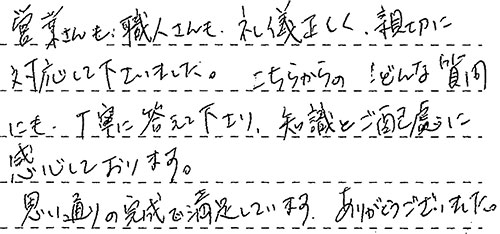 営業さんも、職人さんも、礼儀正しく、親切に
対応して下さいました。 こちらからの どんな質問
にも、丁寧に答えて下さり、知識とご配慮に
感心しております。
思い通りの完成で満足しています。ありがとうございました。